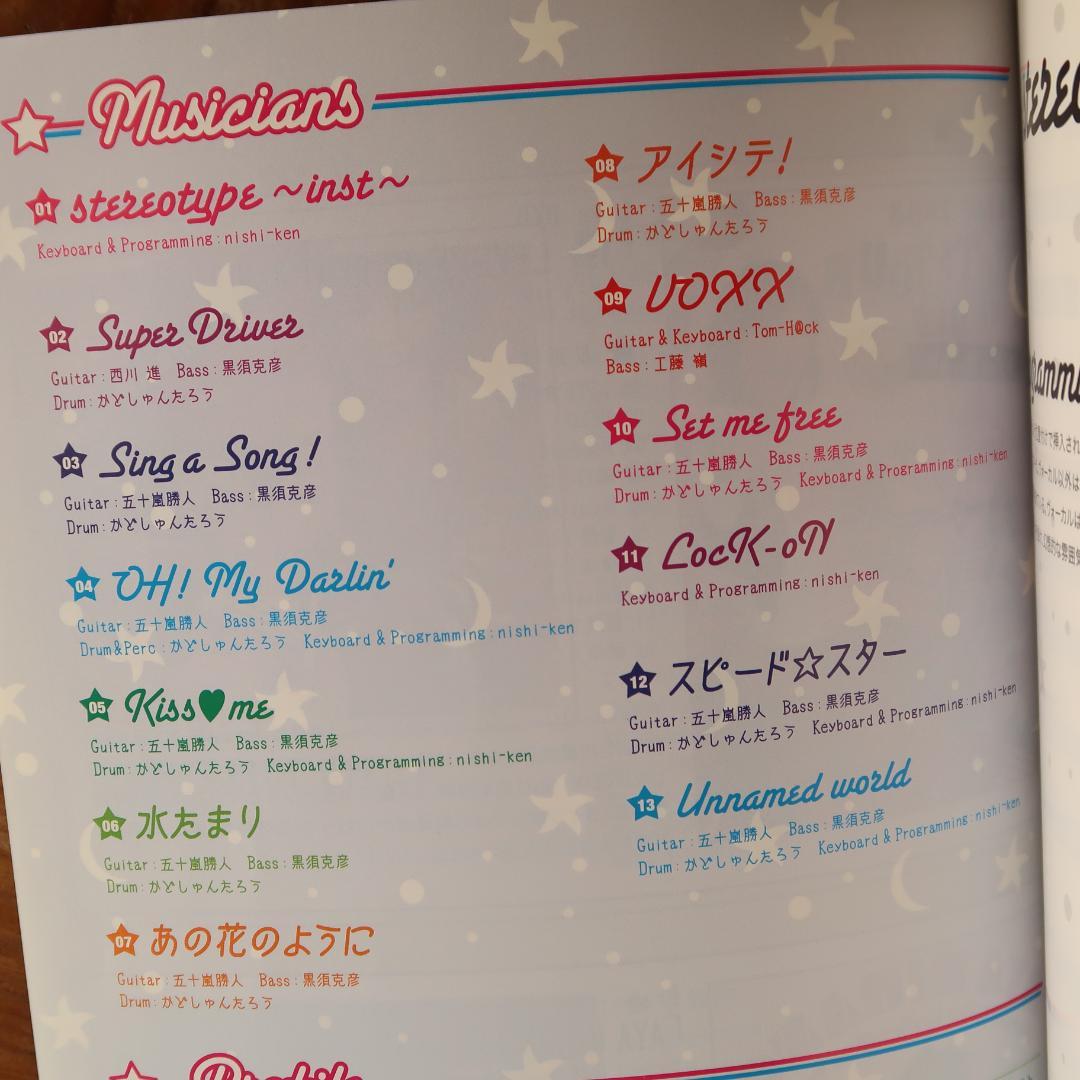 Musicians
01 stereotype ～inst～
Keyboard & Programming：nishi-ken
02 Super Driver
Guitar：西川 進　Bass：黒須克彦
Drum：かどしゅんたろう
03 Sing a Song！
Guitar：五十嵐勝人　Bass：黒須克彦
Drum：かどしゅんたろう
04 OH! My Darlin'
Guitar：五十嵐勝人　Bass：黒須克彦
Drum&Perc：かどしゅんたろう　Keyboard & Programming：nishi-ken
05 Kiss♥me
Guitar：五十嵐勝人　Bass：黒須克彦
Drum：かどしゅんたろう　Keyboard & Programming：nishi-ken
06 水たまり
Guitar：五十嵐勝人　Bass：黒須克彦
Drum：かどしゅんたろう
07 あの花のように
Guitar：五十嵐勝人　Bass：黒須克彦
Drum：かどしゅんたろう
08 アイシテ！
Guitar：五十嵐勝人　Bass：黒須克彦
Drum：かどしゅんたろう
09 VOXX
Guitar & Keyboard：Tom-H@ck
Bass：工藤 嶺
10 Set me free
Guitar：五十嵐勝人　Bass：黒須克彦
Drum：かどしゅんたろう　Keyboard & Programming：nishi-ken
11 LocK-oN
Keyboard & Programming：nishi-ken
12 スピード☆スター
Guitar：五十嵐勝人　Bass：黒須克彦
Drum：かどしゅんたろう　Keyboard & Programming：nishi-ken
13 Unnamed world
Guitar：五十嵐勝人　Bass：黒須克彦
Drum：かどしゅんたろう　Keyboard & Programming：nishi-ken